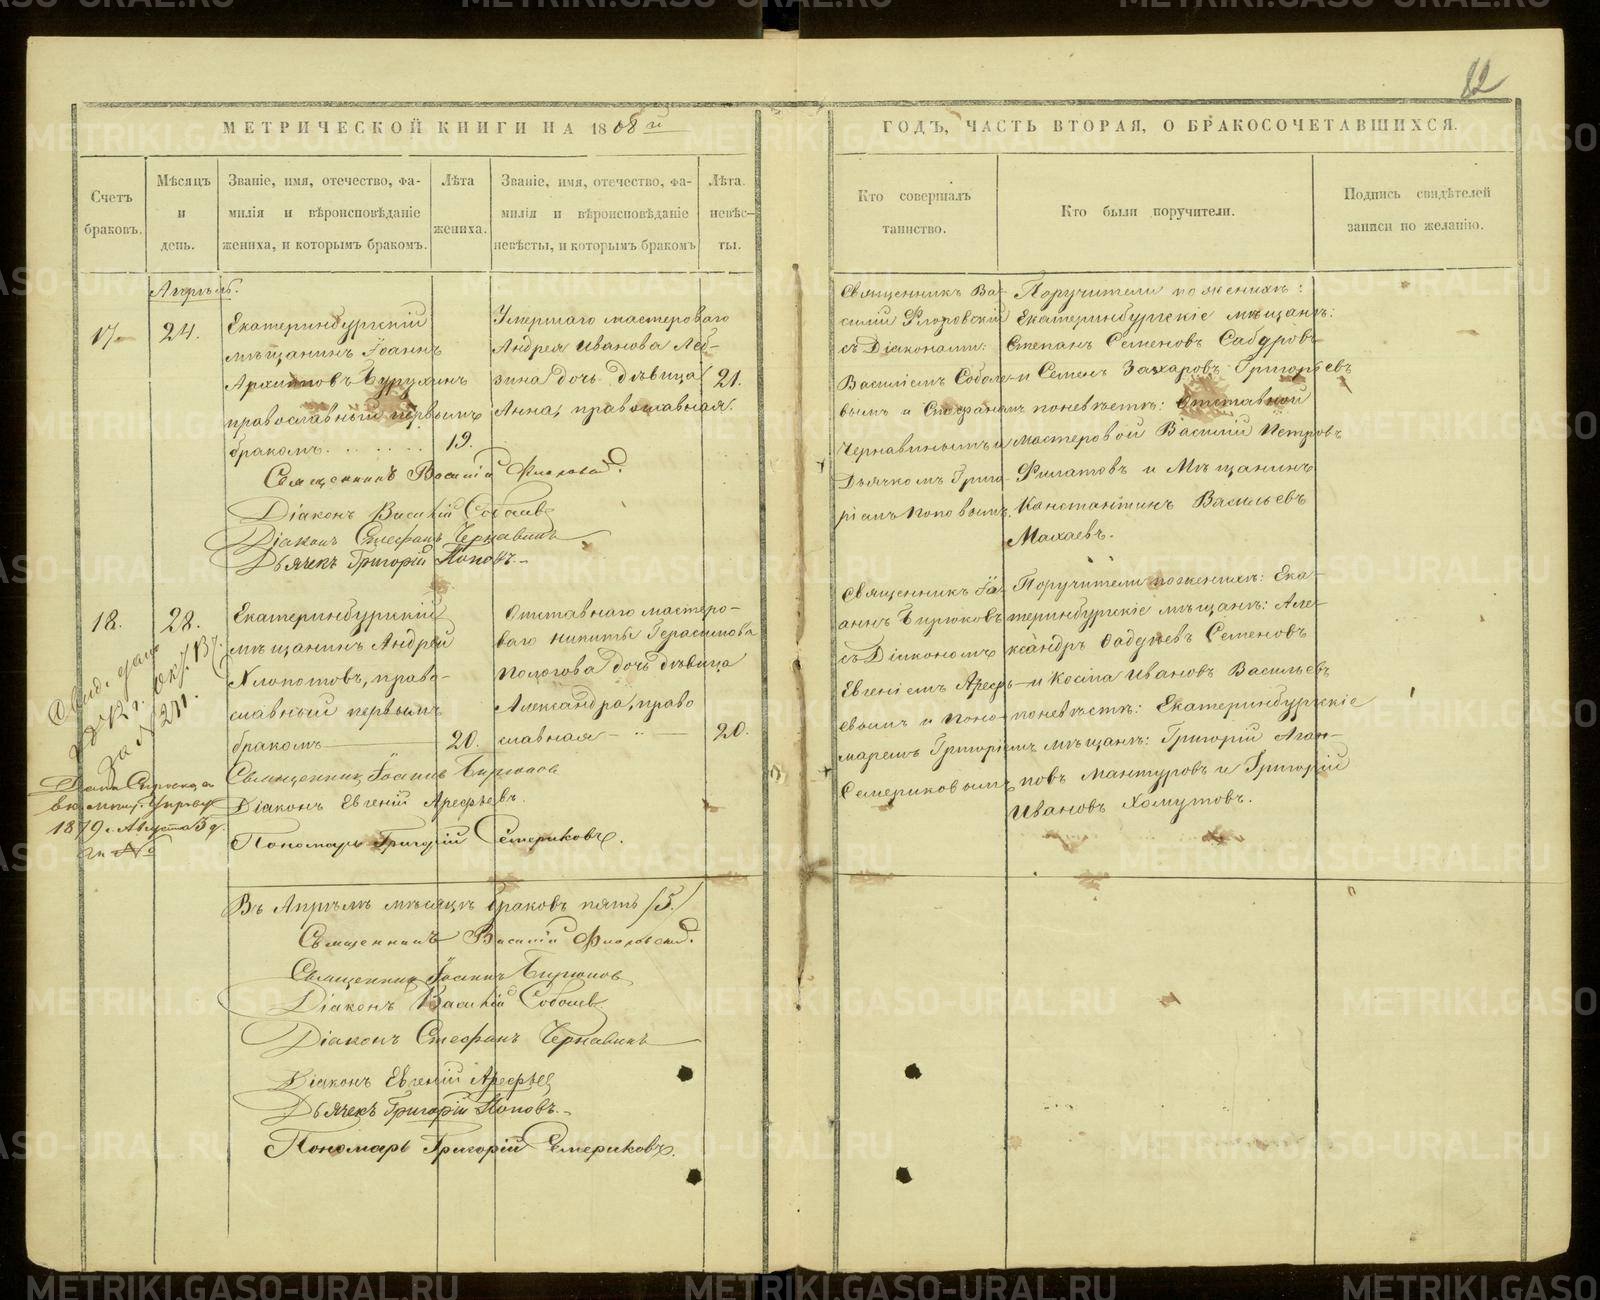 82
МЕТРИЧЕСКОЙ КНИГИ НА 1868 й
ГОДЪ, ЧАСТЬ ВТОРАЯ, О БРАКОСОЧЕТАВШИХСЯ.
Счетъ
браковъ.
Мѣсяцъ
и
день.
Званіе, имя, отечество, фа-
милія и вѣроисповѣданіе
жениха, и которымъ бракомъ.
Лѣта
жениха.
Званіе, имя, отечество, фа-
милія и вѣроисповѣданіе
невѣсты, и которымъ бракомъ
Лѣта
невѣс-
ты.
Кто совершалъ
таинство.
Кто были поручители.
Подпись свидѣтелей
записи по желанію.
Апрѣль.
17
24.
Екатеринбургскій
мѣщанинъ Іоаннъ
Архиповъ Бурухинъ
православный первымъ
бракомъ.
19.
Умершаго мастероваго
Андрея Иванова
дочь дѣвица
Анна, православная.
21.
Священникъ Ва-
силій Флоровскій
съ Діаконами:
Василіемъ Соболе-
вымъ и Стефаномъ
Чернавинымъ и
Дьячкомъ Григо-
ріемъ Поповымъ.
Поручители по женихѣ:
Екатеринбургскіе мѣщане:
Степанъ Семеновъ Сабуровъ
и Семенъ Захаровъ Григорьевъ
по невѣстѣ: отставной
мастеровой Василій Петровъ
Филатовъ и Мѣщанинъ
Константинъ Васильевъ
Махаевъ.
Священникъ Василій Флоровскій.
Діаконъ Василій Соболевъ
Діаконъ Стефанъ Чернавинъ
Дьячекъ Григорій Поповъ.
18.
28.
Екатеринбургскій
мѣщанинъ Андрей
Хлопотовъ, право-
славный первымъ
бракомъ
20.
Отставнаго мастеро-
ваго Никиты Герасимова
Пологова дочь дѣвица
Александра, право
славная
20.
Священникъ Іо-
аннъ Бирюковъ
съ Діакономъ
Евгеніемъ Арефь-
евымъ и Поно-
маремъ Григоріемъ
Семериковымъ
Поручители по женихѣ: Ека-
теринбургскіе мѣщане: Але-
ксандръ Семеновъ
и Косма Ивановъ Васильевъ
по невѣстѣ: Екатеринбургскіе
мѣщане: Григорій Агап-
повъ Мантуровъ и Григорій
Ивановъ Хомутовъ.
Священникъ Іоаннъ Бирюковъ
Діаконъ Евгеній Арефьевъ.
Пономарь Григорій Семериковъ.
за № 211.
1879 г. Августа 3 д.
за №
Въ Апрѣлѣ мѣсяцѣ браковъ пять /5./
Священникъ Василій Флоровскій.
Священникъ Іоаннъ Бирюковъ
Діаконъ Василій Соболевъ
Діаконъ Стефанъ Чернавинъ
Діаконъ Евгеній Арефьев
Дьячекъ Григорій Поповъ.
Пономарь Григорій Семериковъ.
METRIKI.GASO-URAL.RU